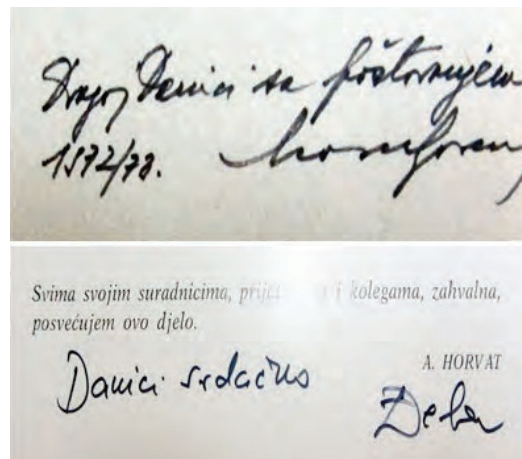 Dragoj Danici sa poštovanjem
1972/73.
Svima svojim suradnicima, i kolegama, zahvalna,
posvećujem ovo djelo.
A. HORVAT
Danici srdačno
Đeba